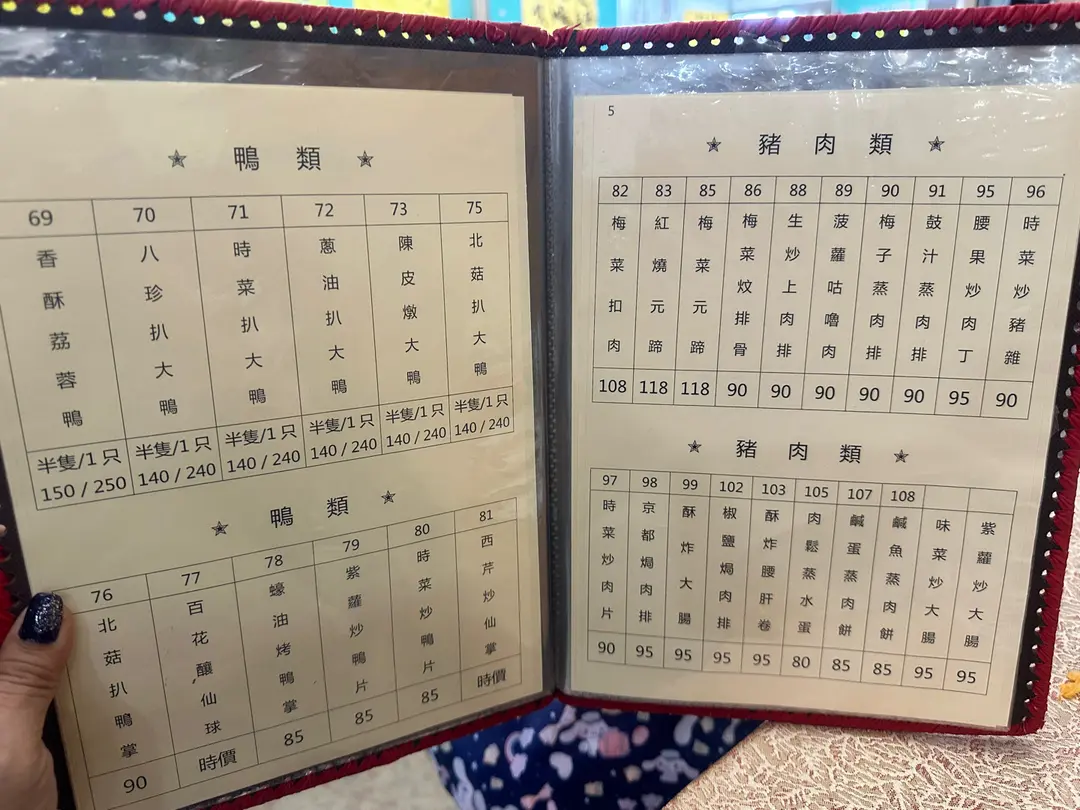 ✭ 鴨類 ✭
69 70 71 72 73 75
香酥荔蓉鴨
八珍扒大鴨
時菜扒大鴨
蔥油扒大鴨
陳皮燉大鴨
北菇扒大鴨
半隻/1只 半隻/1只 半隻/1只 半隻/1只 半隻/1只 半隻/1只
150 / 250 140 / 240 140 / 240 140 / 240 140 / 240 140 / 240
✭ 鴨類 ✭
76 77 78 79 80 81
北菇扒鴨掌
百花釀仙球
蠔油烤鴨掌
紫蘿炒鴨片
時菜炒鴨片
西芹炒仙掌
90 時價 85 85 85 時價
5
✭ 豬肉類 ✭
82 83 85 86 88 89 90 91 95 96
梅菜扣肉
紅燒元蹄
梅菜元蹄
梅菜炆排骨
生炒上肉排
菠蘿咕嚕肉
梅子蒸肉排
鼓汁蒸肉排
腰果炒肉丁
時菜炒豬雜
108 118 118 90 90 90 90 90 95 90
✭ 豬肉類 ✭
97 98 99 102 103 105 107 108
時菜炒肉片
京都焗肉排
酥炸大腸
椒鹽焗肉排
酥炸腰肝卷
肉鬆蒸水蛋
鹹蛋蒸肉餅
鹹魚蒸肉餅
味菜炒大腸
紫蘿炒大腸
90 95 95 95 95 80 85 85 95 95